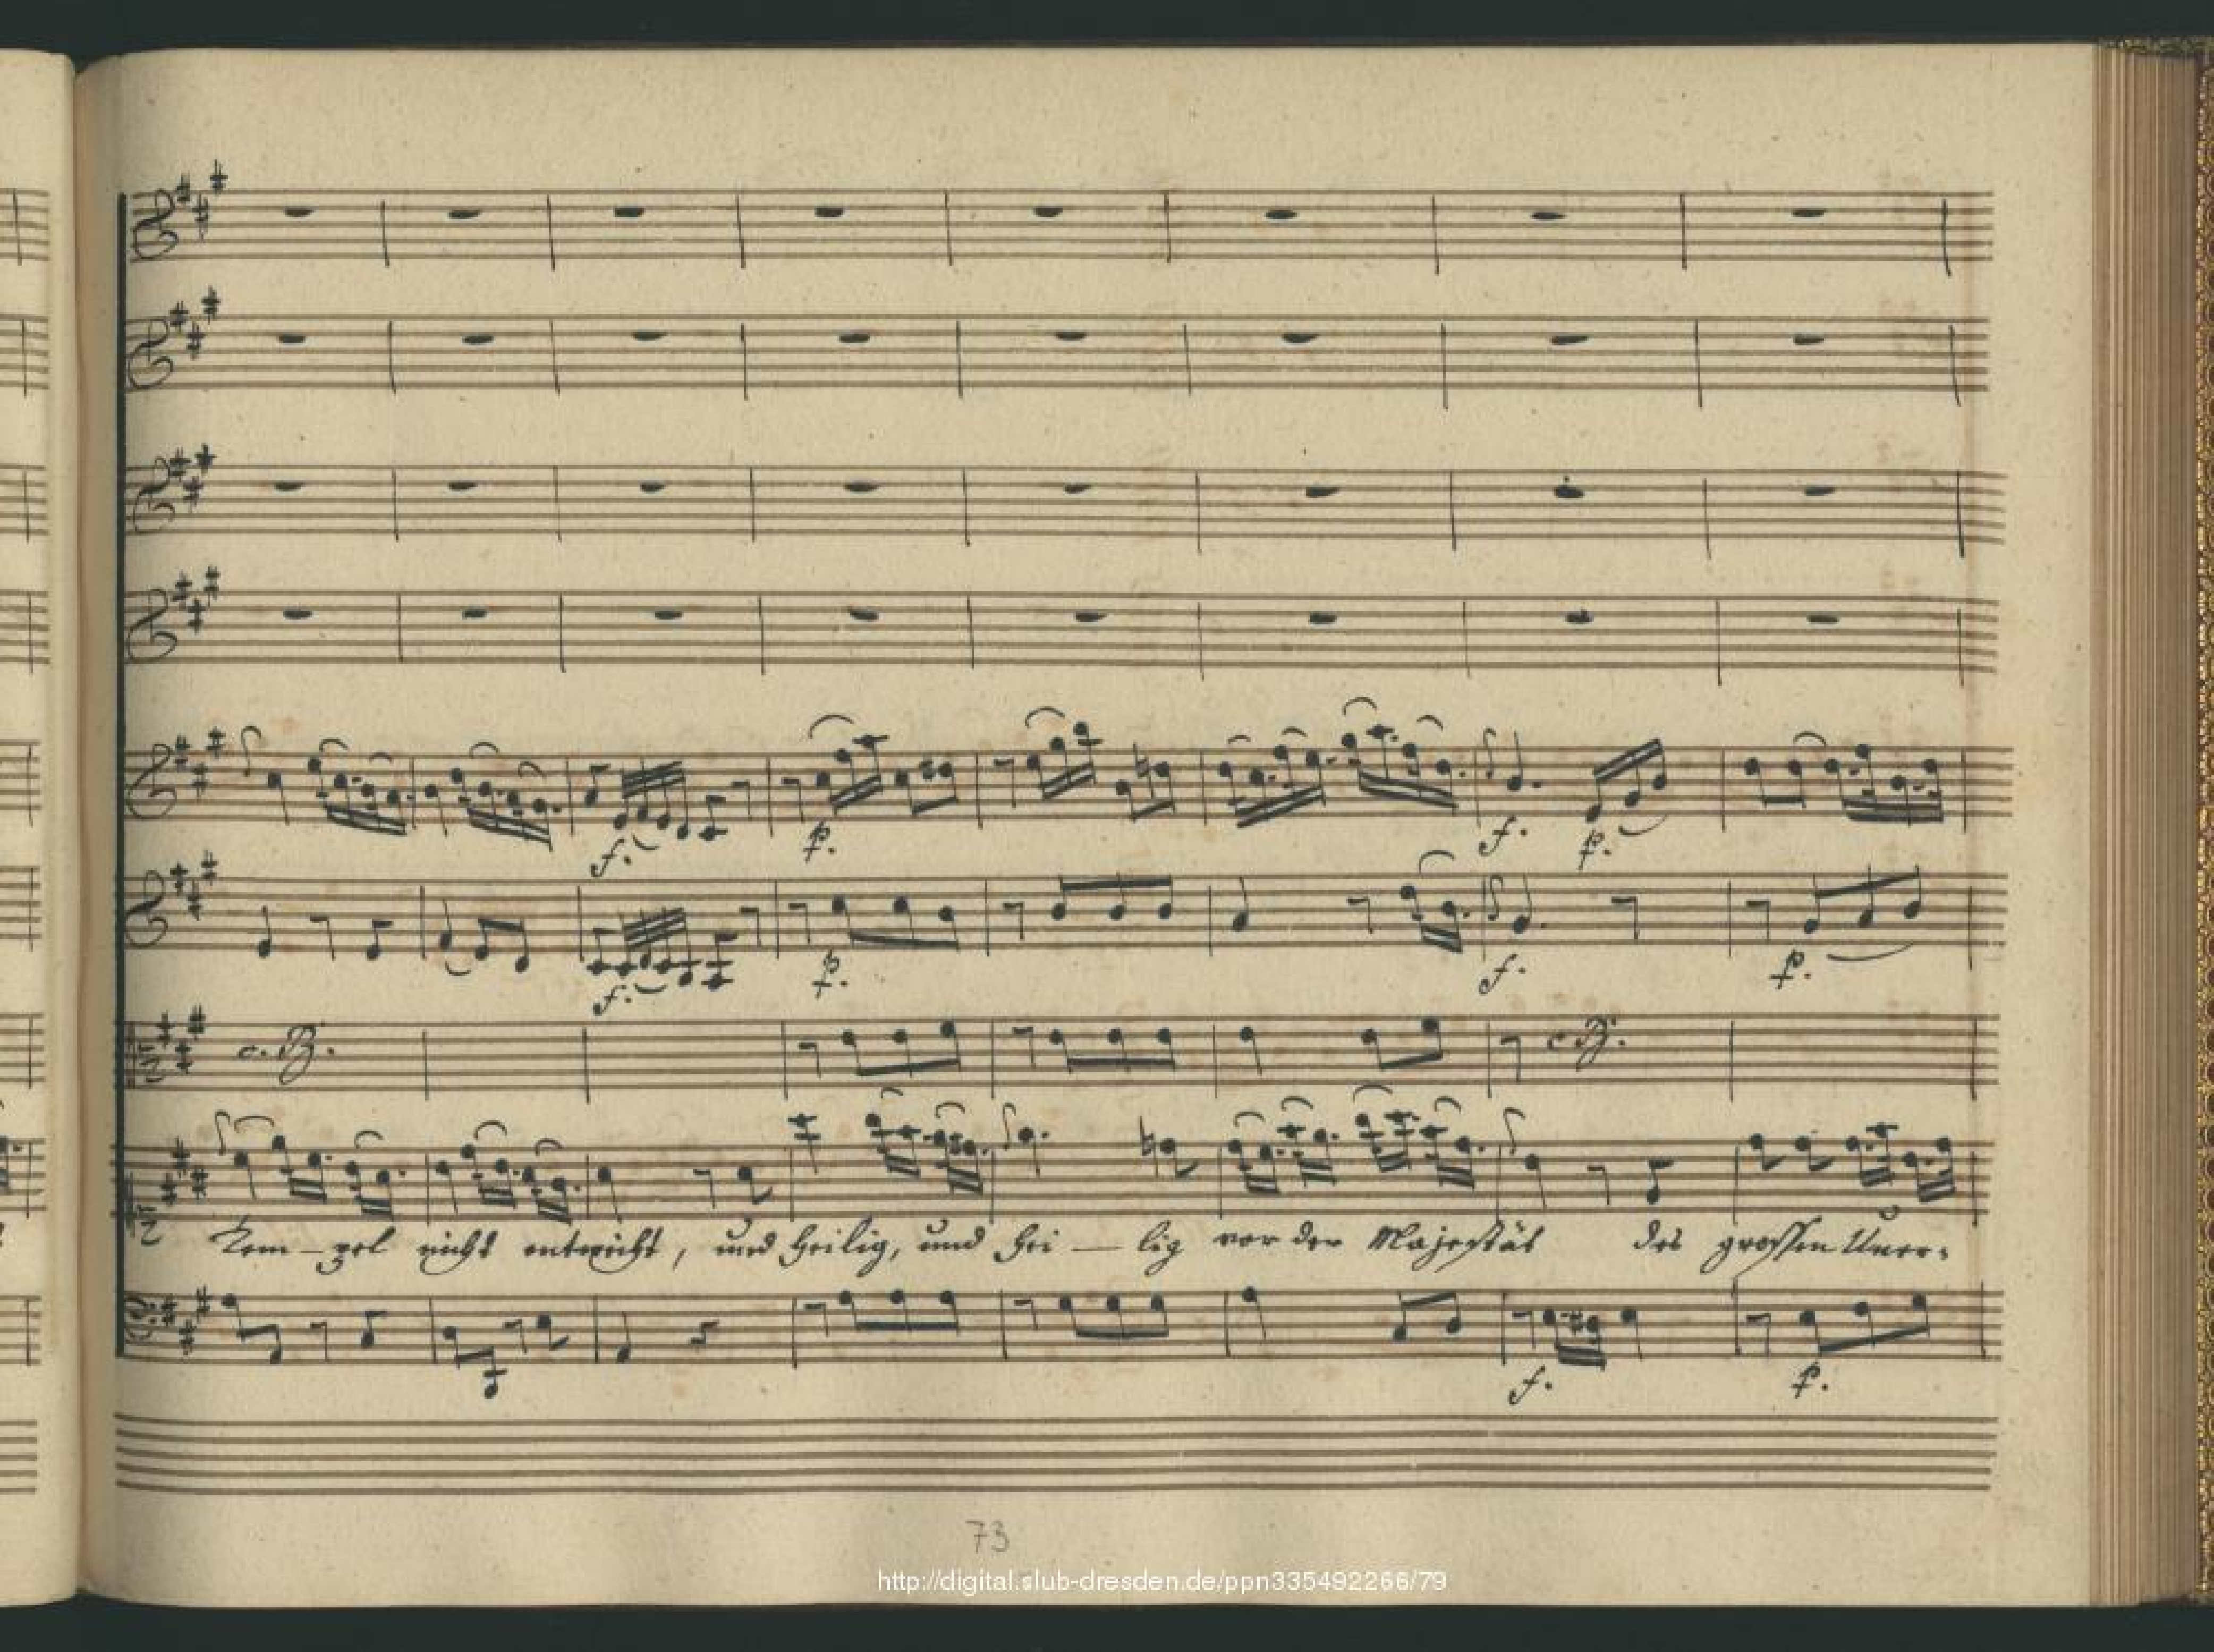 f. p. f. p.
f. p. f. p.
c. B. c B.
Tem-pel nicht entweicht, und heilig, und hei — lig vor der Majestät des grossen Uner-
f. p.
73
http://digital.slub-dresden.de/ppn335492266/79